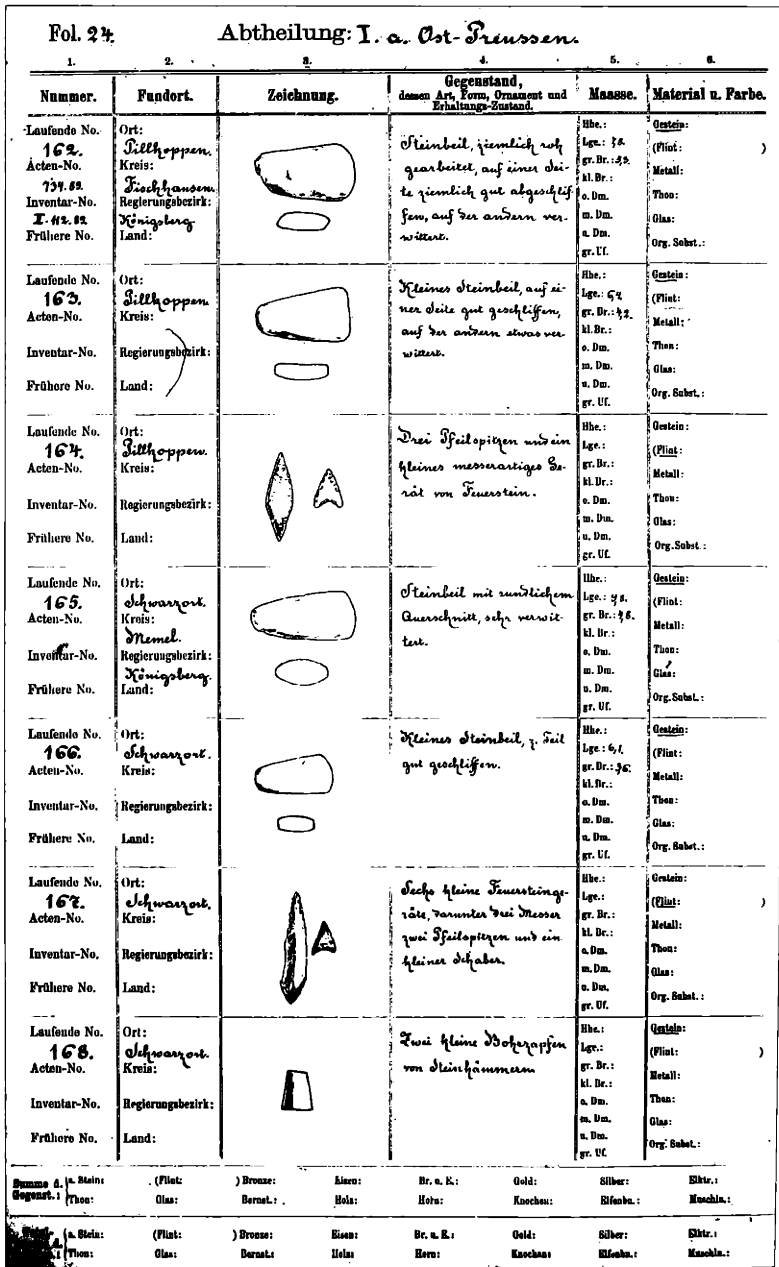 Fol. 24. Abtheilung: I. a. Ost-Preussen.
1. 2. 3. 4. 5. 6.
Nummer. Fundort. Zeichnung. Gegenstand, dessen Art, Form, Ornament und Erhaltungs-Zustand. Maasse. Material u. Farbe.
Laufende No. 162.
Acten-No. 734.82.
Inventar-No. I. 112.82
Frühere No.
Ort: Pillkoppen.
Kreis: Fischhausen.
Regierungsbezirk: Königsberg
Land:
Steinbeil, ziemlich roh
gearbeitet, auf einer Sei-
te ziemlich gut abgeschlif-
fen, auf der andern ver-
wittert.
Hhe.:
Lge.:
gr. Br.:
kl. Br.:
o. Dm.
m. Dm.
u. Dm.
gr. Uf.
Gestein:
(Flint: )
Metall:
Thon:
Glas:
Org. Subst.:
Laufende No. 163.
Acten-No.
Inventar-No.
Frühere No.
Ort: Pillkoppen
Kreis:
Regierungsbezirk:
Land:
Kleines Steinbeil, auf ei-
ner Seite gut geschliffen,
auf der andern etwas ver-
wittert.
Hhe.:
Lge.:
gr. Br.: 4,2.
kl. Br.:
o. Dm.
m. Dm.
u. Dm.
gr. Uf.
Gestein:
(Flint: )
Metall:
Thon:
Glas:
Org. Subst.:
Laufende No. 164.
Acten-No.
Inventar-No.
Frühere No.
Ort: Pillkoppen.
Kreis:
Regierungsbezirk:
Land:
Drei Pfeilspitzen und ein
kleines messerartiges Ge-
rät von Feuerstein.
Hhe.:
Lge.:
gr. Br.:
kl. Br.:
o. Dm.
m. Dm.
u. Dm.
gr. Uf.
Gestein:
(Flint: )
Metall:
Thon:
Glas:
Org. Subst.:
Laufende No. 165.
Acten-No.
Inventar-No.
Frühere No.
Ort: Schwarzort.
Kreis: Memel.
Regierungsbezirk: Königsberg.
Land:
Steinbeil mit rundlichem
Querschnitt, sehr verwit-
tert.
Hhe.:
Lge.:
gr. Br.: 4,8.
kl. Br.:
o. Dm.
m. Dm.
u. Dm.
gr. Uf.
Gestein:
(Flint: )
Metall:
Thon:
Glas:
Org. Subst.:
Laufende No. 166.
Acten-No.
Inventar-No.
Frühere No.
Ort: Schwarzort.
Kreis:
Regierungsbezirk:
Land:
Kleines Steinbeil, z. Teil
gut geschliffen.
Hhe.:
Lge.: 6,1.
gr. Br.:
kl. Br.:
o. Dm.
m. Dm.
u. Dm.
gr. Uf.
Gestein:
(Flint: )
Metall:
Thon:
Glas:
Org. Subst.:
Laufende No. 167.
Acten-No.
Inventar-No.
Frühere No.
Ort: Schwarzort.
Kreis:
Regierungsbezirk:
Land:
Sechs kleine Feuersteinge-
räte, darunter drei Messer
zwei Pfeilspitzen und ein
kleiner Schaber.
Hhe.:
Lge.:
gr. Br.:
kl. Br.:
o. Dm.
m. Dm.
u. Dm.
gr. Uf.
Gestein:
(Flint: )
Metall:
Thon:
Glas:
Org. Subst.:
Laufende No. 168.
Acten-No.
Inventar-No.
Frühere No.
Ort: Schwarzort.
Kreis:
Regierungsbezirk:
Land:
Zwei kleine Bohrzapfen
von Steinhämmern
Hhe.:
Lge.:
gr. Br.:
kl. Br.:
o. Dm.
m. Dm.
u. Dm.
gr. Uf.
Gestein:
(Flint: )
Metall:
Thon:
Glas:
Org. Subst.:
Summe d. Gegenst.: a. Stein: (Flint: ) Bronze: Eisen: Br. u. E.: Gold: Silber: Elktr.:
Thon: Glas: Bernst.: Holz: Horn: Knochen: Elfenbn.: Muschln.:
a. Stein: (Flint: ) Bronze: Eisen: Br. u. E.: Gold: Silber: Elktr.:
Thon: Glas: Bernst.: Holz: Horn: Knochen: Elfenbn.: Muschln.: